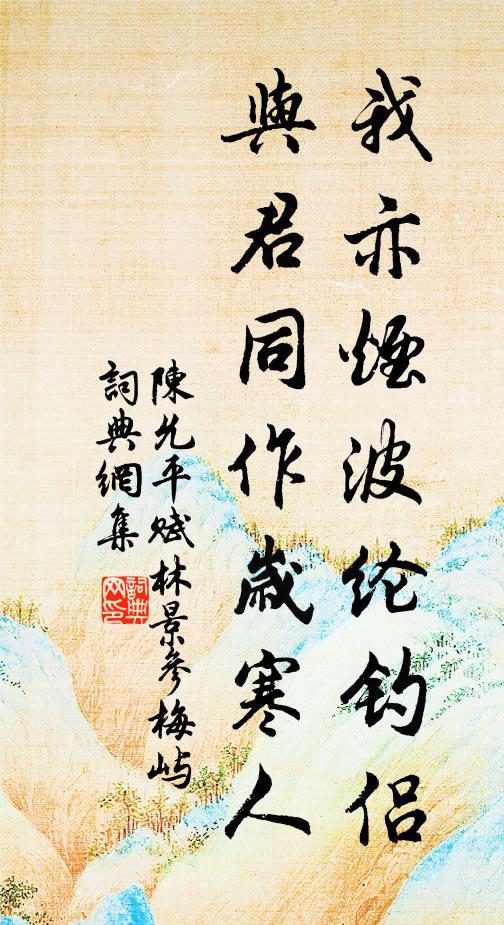 我亦煙波纶钓侣
與君同作歲寒人
陳允平赋林景參梅屿
詞典網集
詞典